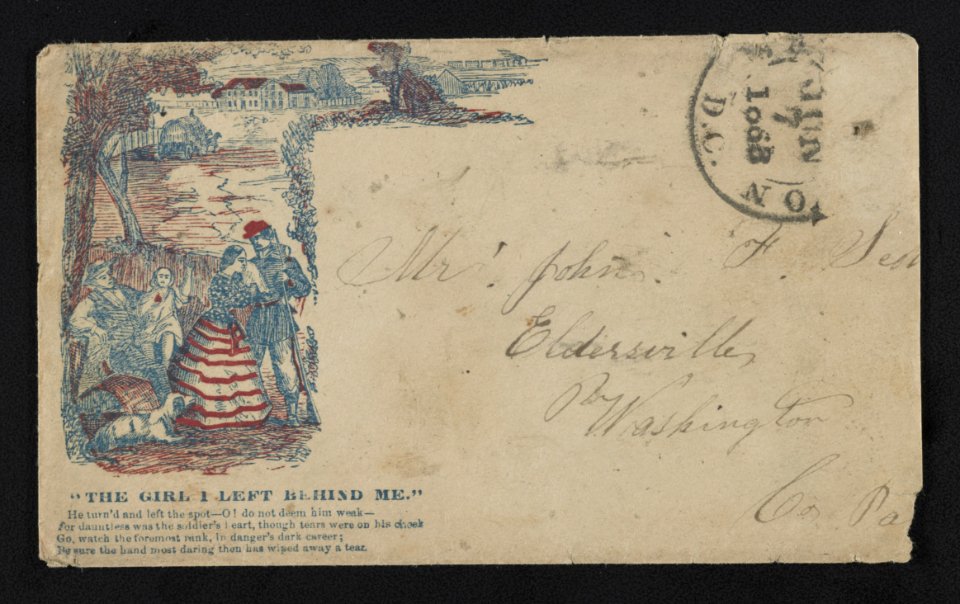 JUN
7
1863
D.C.
ON
Mr. John F.
Eldersville,
Washington
Co Pa
"THE GIRL I LEFT BEHIND ME."
He turn'd and left the spot—O! do not deem him weak—
For dauntless was the soldier's heart, though tears were on his cheek
Go, watch the foremost rank, in danger's dark career;
Be sure the hand most daring then has wiped away a tear.